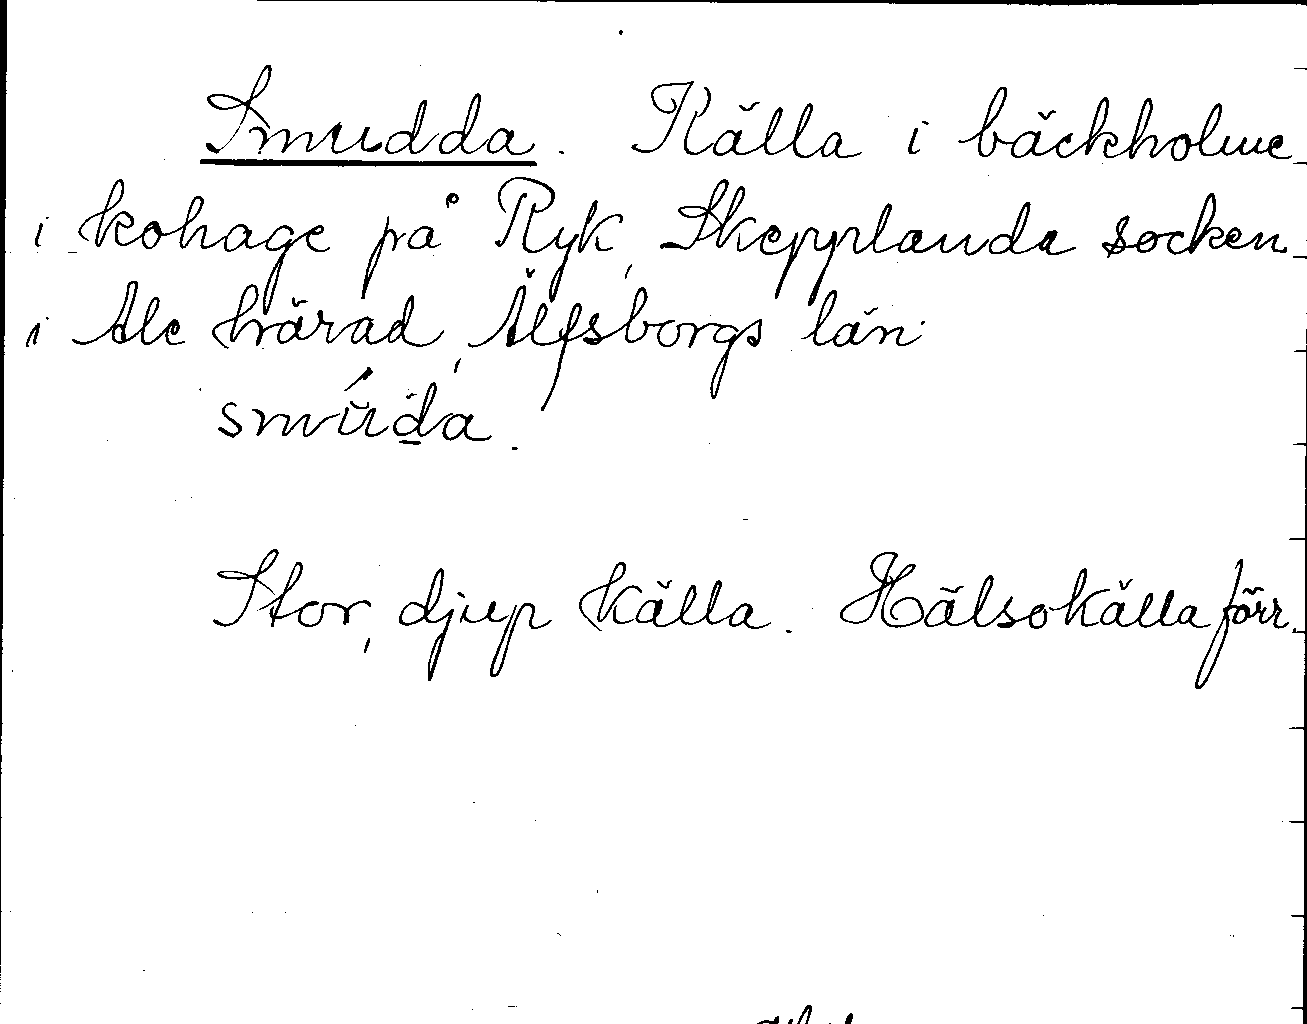 Smudda. Källa i bäckholme
i kohage på Ryk, Skepplanda socken
i Ale härad, Älfsborgs län:
smúda.
Stor, djup källa. Hälsokälla förr.